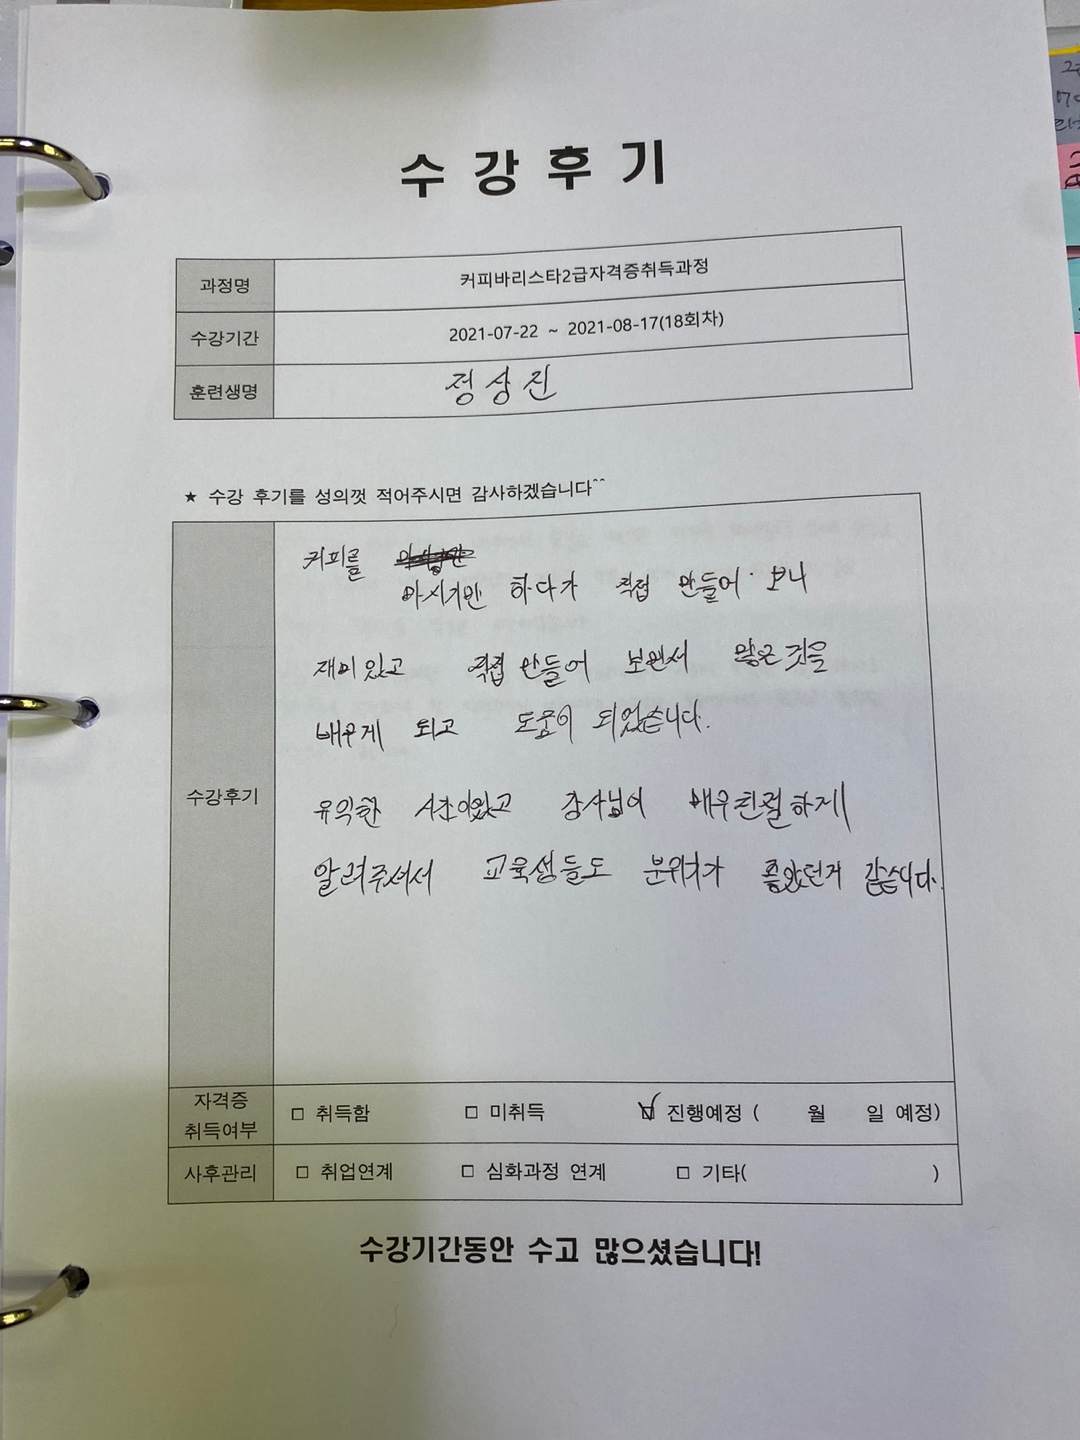 수 강 후 기
과정명 커피바리스타2급자격증취득과정
수강기간 2021-07-22 ~ 2021-08-17(18회차)
훈련생명 정상진
★ 수강 후기를 성의껏 적어주시면 감사하겠습니다^^
수강후기
커피를
마시기만 하다가 직접 만들어 보니
재미있고 직접 만들어 보면서 많은 것을
배우게 되고 도움이 되었습니다.
유익한 시간이었고 강사님이 매우친절하게
알려주셔서 교육생들도 분위기가 좋았던거 같습니다.
자격증
취득여부 □ 취득함 □ 미취득 ☑ 진행예정 ( 월 일 예정)
사후관리 □ 취업연계 □ 심화과정 연계 □ 기타( )
수강기간동안 수고 많으셨습니다!